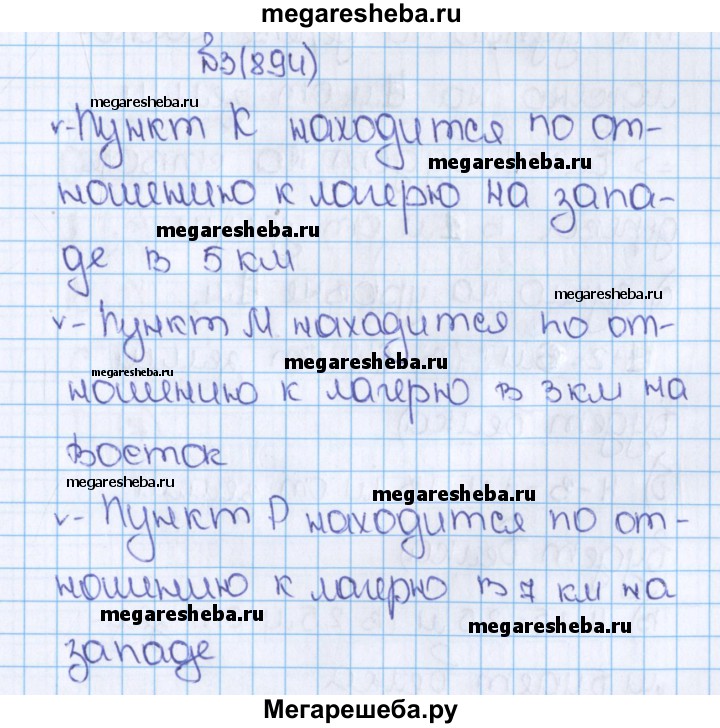 megaresheba.ru
№3(894)
megaresheba.ru
v-Пункт К находится по от-
megaresheba.ru
ношению к лагерю на запа-
megaresheba.ru
де в 5 км
megaresheba.ru
v- Пункт М находится по от-
megaresheba.ru
megaresheba.ru
ношению к лагерю в 3 км на
восток
megaresheba.ru
megaresheba.ru
v- Пункт Р находится по от-
ношению к лагерю в 7 км на
megaresheba.ru
megaresheba.ru
западе
Мегарешеба.ру